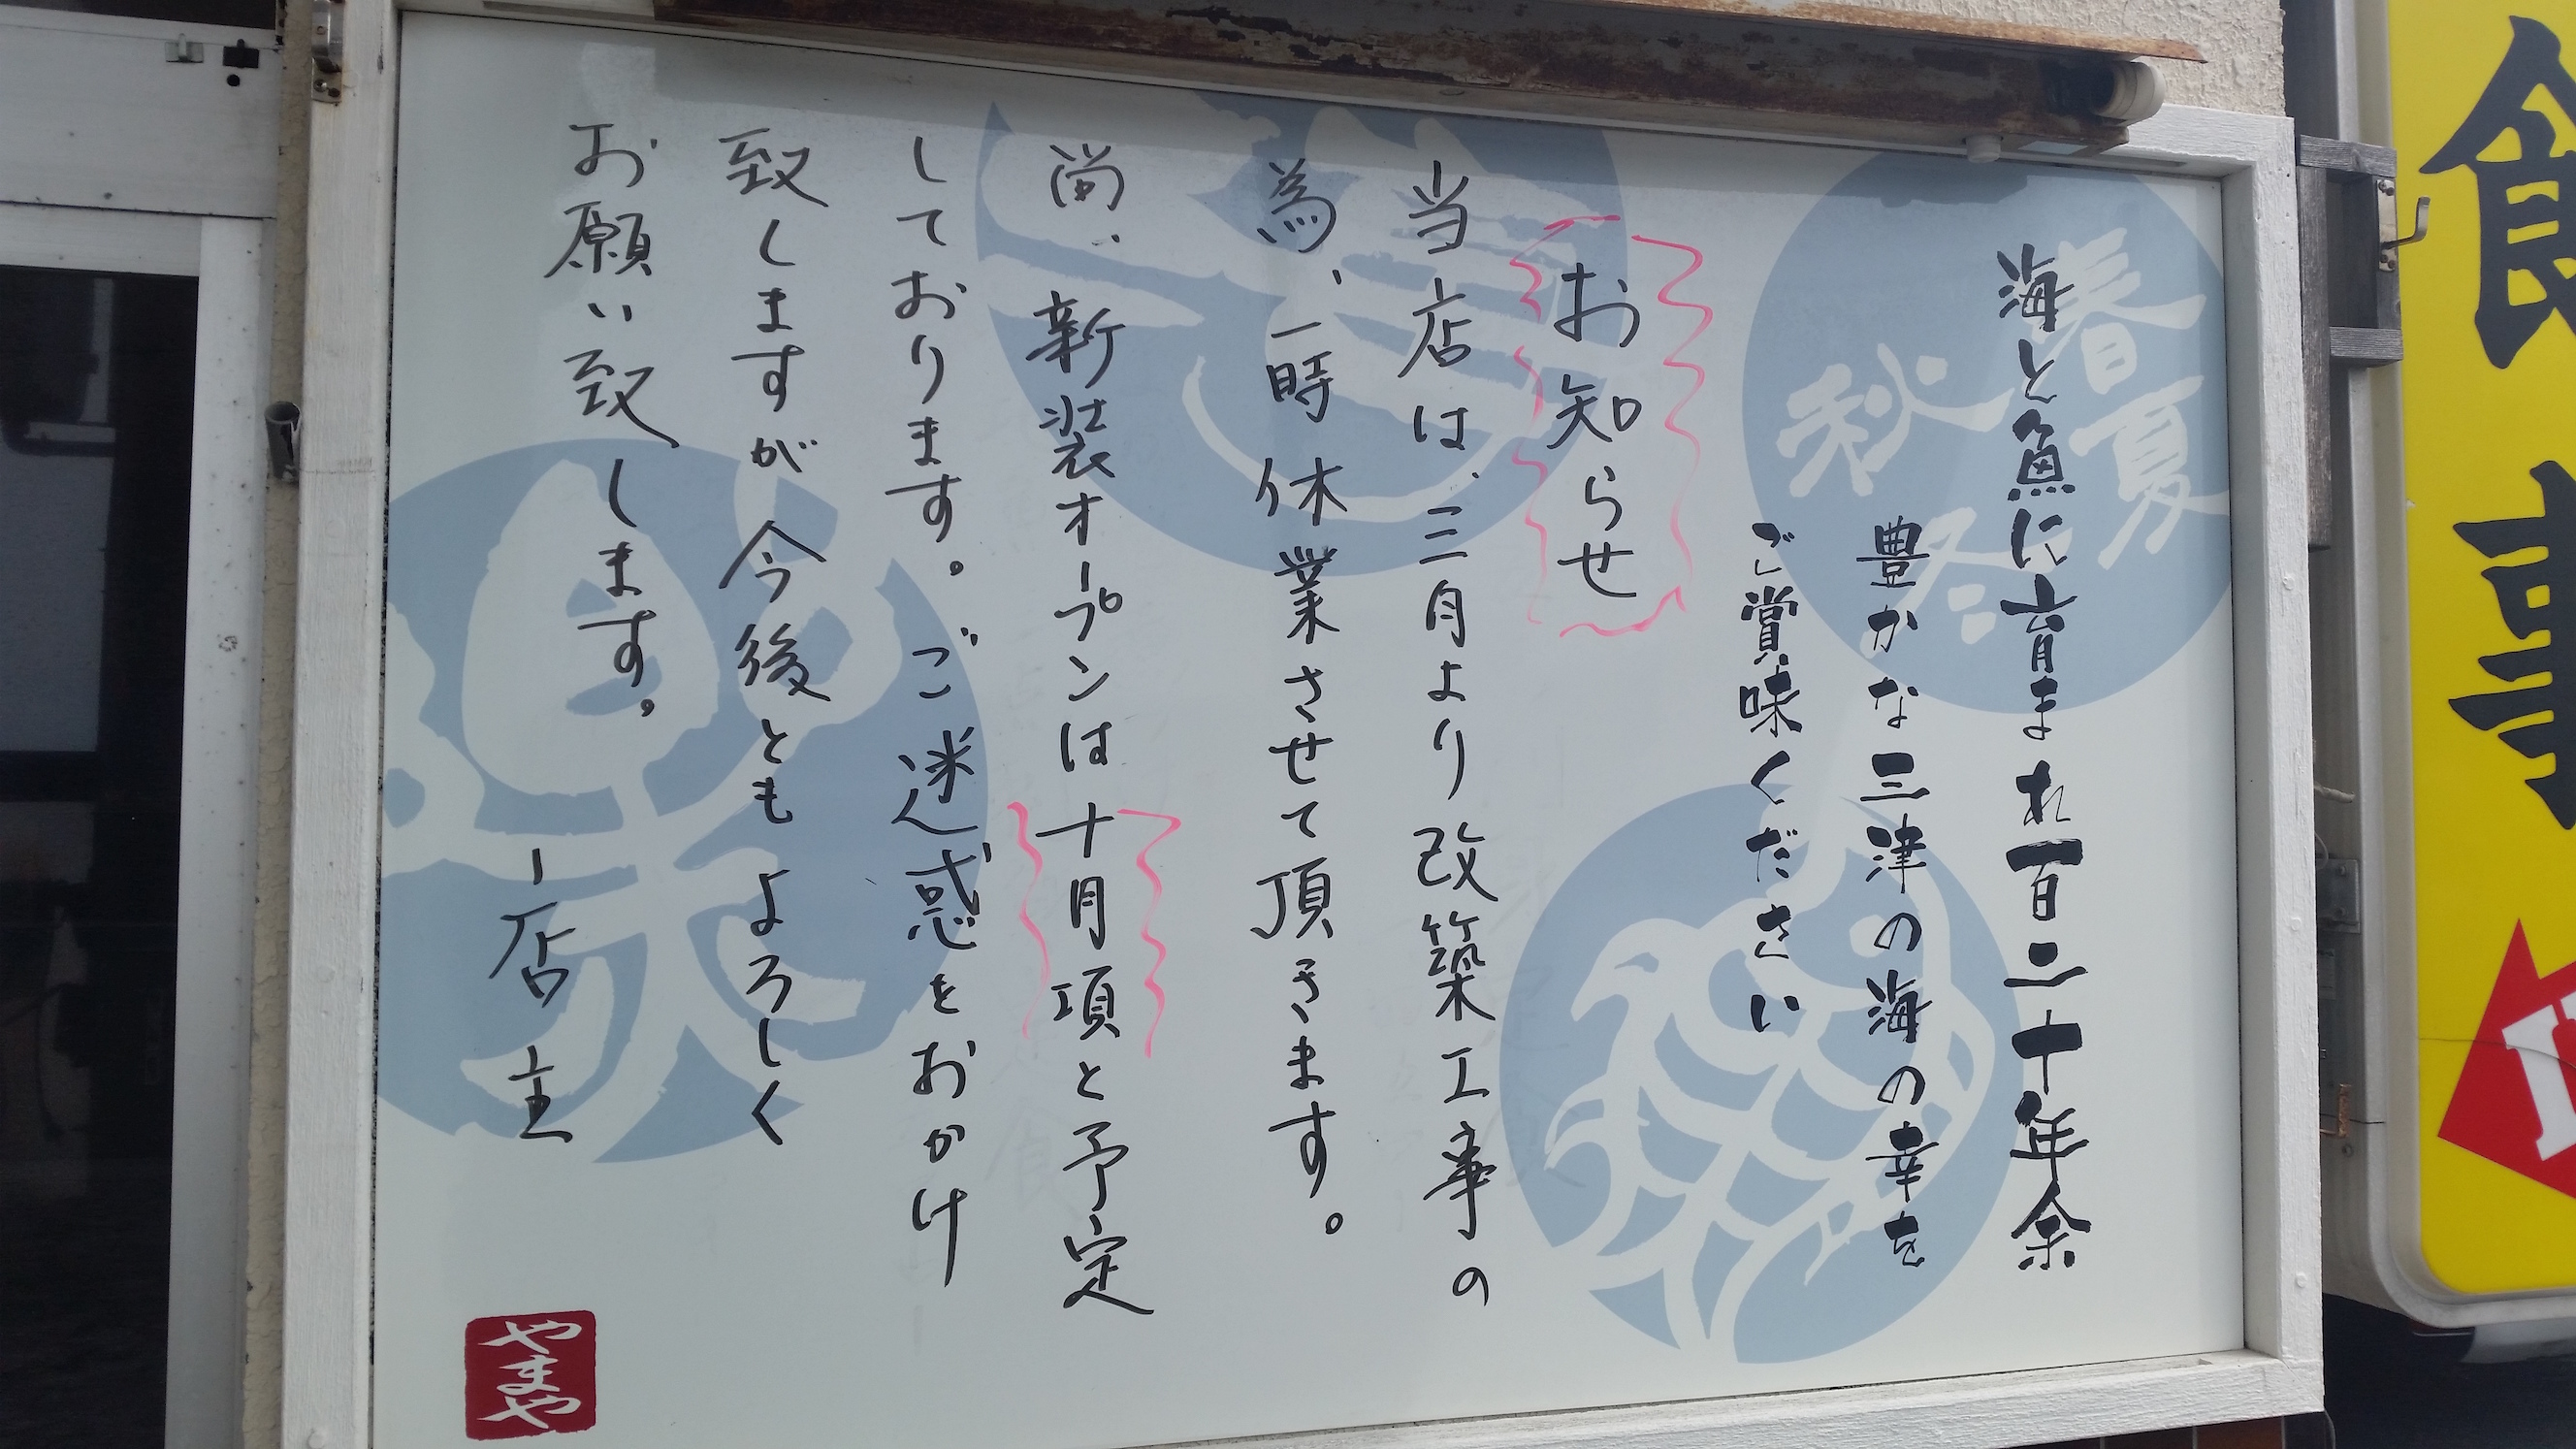 海と魚に育まれ百二十年余
豊かな三津の海の幸を
ご賞味ください
春夏
秋冬
お知らせ
当店は、三月より改築工事の
為、一時休業させて頂きます。
尚、新装オープンは十月項と予定
しております。ご迷惑をおかけ
致しますが今後ともよろしく
お願い致します。
ー店主
やまや
食事